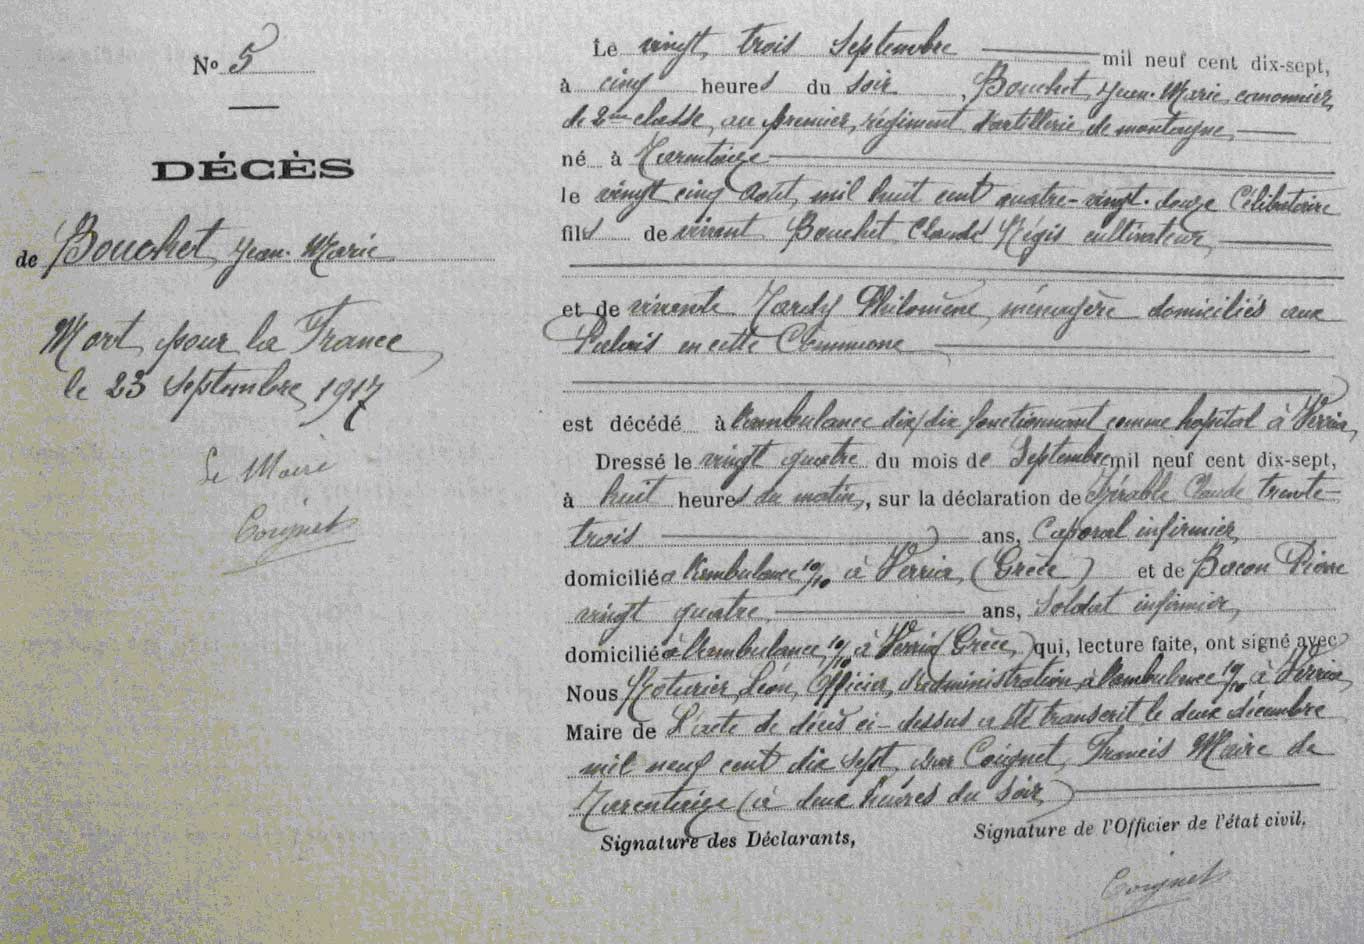 N° 5
DÉCÈS
de Bouchet Jean-Marie
Mort pour la France
le 23 septembre 1917
Le Maire
Coignet
Le vingt trois septembre mil neuf cent dix-sept,
à cinq heures du soir, Bouchet Jean-Marie canonnier
de 2me classe au premier régiment d'artillerie de montagne
né à Tarentaise
le vingt cinq août mil huit cent quatre-vingt-douze Célibataire
fils de vivant Bouchet Claude Régis cultivateur
et de vivante Tardy Philomène ménagère domiciliés aux
Palais en cette Commune
est décédé à l'ambulance dix/dix fonctionnant comme hopital à Verria
Dressé le vingt quatre du mois de Septembre mil neuf cent dix-sept,
à huit heures du matin, sur la déclaration de Claude trente-
trois ans, Caporal infirmier
domicilié a l'ambulance 10/10 à Verria (Grèce) et de Bacon Pierre
vingt quatre ans, soldat infirmier
domicilié à l'ambulance 10/10 à Verria (Grèce) qui, lecture faite, ont signé avec
Nous Roturier Léon, Officier d'administration à l'ambulance 10/10 à Verria
Maire de L'acte de décès ci-dessus a été transcrit le deux décembre
mil neuf cent dix sept par Coignet Francis Maire de
Tarentaise (à deux heures du soir)
Signature des Déclarants,
Signature de l'Officier de l'état civil,
Coignet